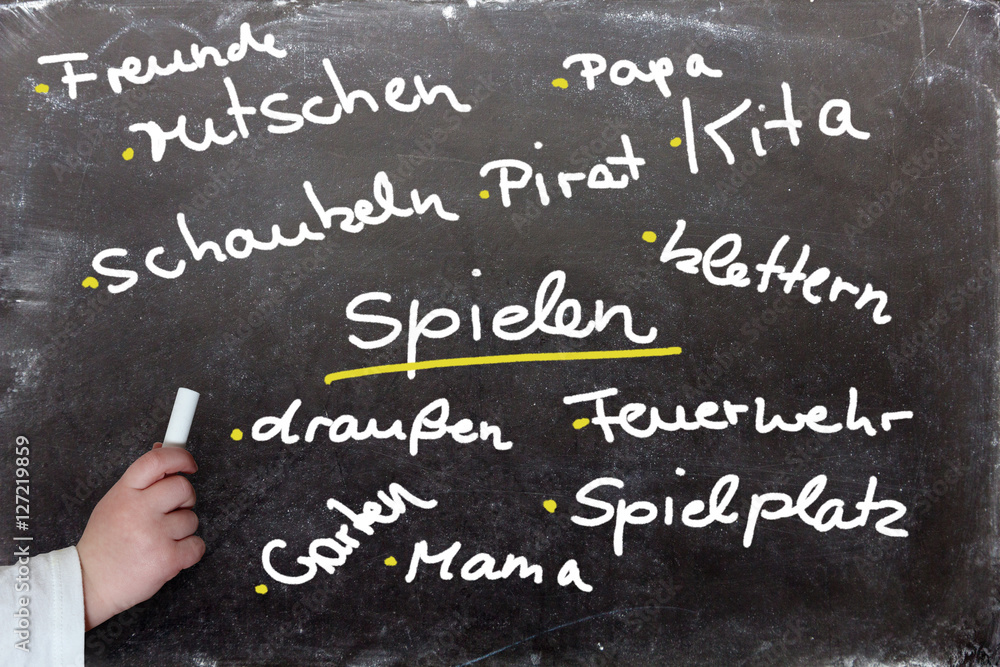 • Freunde
• rutschen
• Papa
• Kita
• Pirat
• schaukeln
• klettern
Spielen
• draußen
• Feuerwehr
• Garten
• Mama
• Spielplatz
Adobe Stock | #127219859